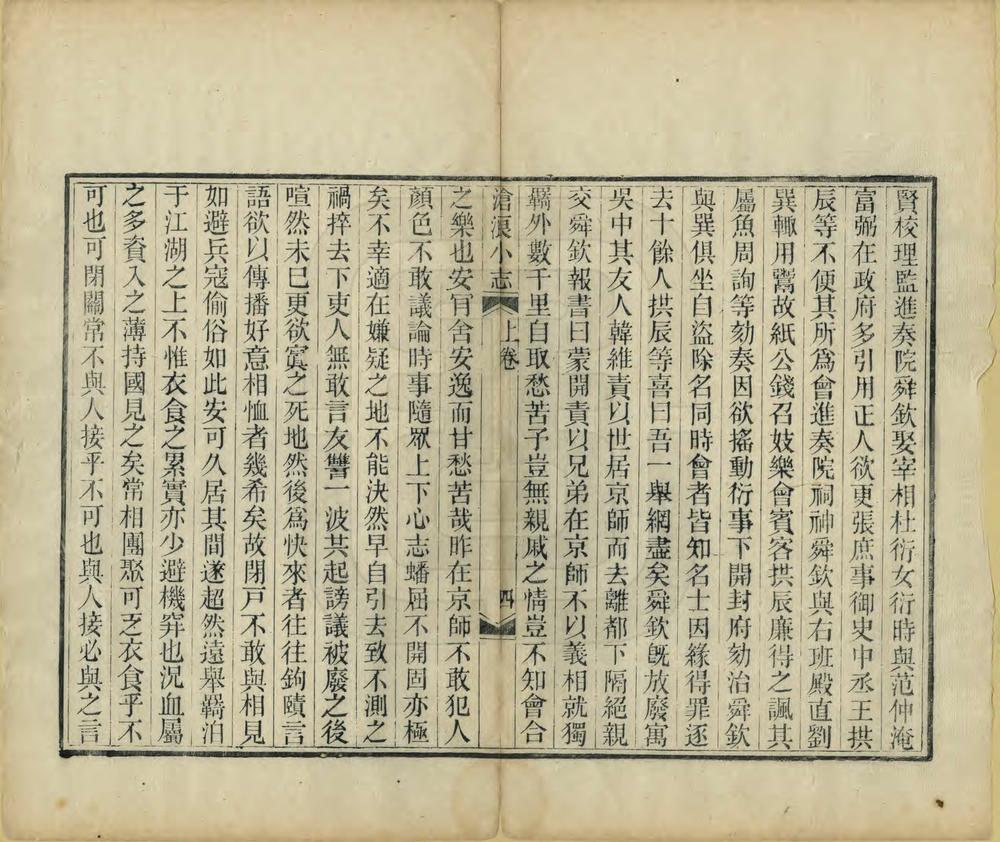 賢校理監進奏院舜欽娶宰相杜衍女衍時與范仲淹
富弼在政府多引用正人欲更張庶事御史中丞王拱
辰等不便其所爲會進奏院祠神舜欽與右班殿直劉
巽輙用鬻故紙公錢召妓樂會賓客拱辰廉得之諷其
屬魚周詢等劾奏因欲搖動衍事下開封府劾治舜欽
與巽俱坐自盜除名同時會者皆知名士因緣得罪逐
去十餘人拱辰等喜曰吾一舉網盡矣舜欽旣放廢寓
吳中其友人韓維責以世居京師而去離都下隔絕親
交舜欽報書曰蒙開責以兄弟在京師不以義相就獨
羇外數千里自取愁苦予豈無親戚之情豈不知會合
滄浪小志 上卷 四
之樂也安肎舍安逸而甘愁苦哉昨在京師不敢犯人
顏色不敢議論時事隨眾上下心志蟠屈不開固亦極
矣不幸適在嫌疑之地不能決然早自引去致不測之
禍捽去下吏人無敢言友讐一波其起謗議被廢之後
喧然未已更欲寘之死地然後爲快來者往往鉤賾言
語欲以傳播好意相恤者幾希矣故閉戸不敢與相見
如避兵寇偷俗如此安可久居其間遂超然遠舉羇泊
于江湖之上不惟衣食之累實亦少避機穽也況血屬
之多資入之薄持國見之矣常相團聚可乏衣食乎不
可也可閉關常不與人接乎不可也與人接必與之言